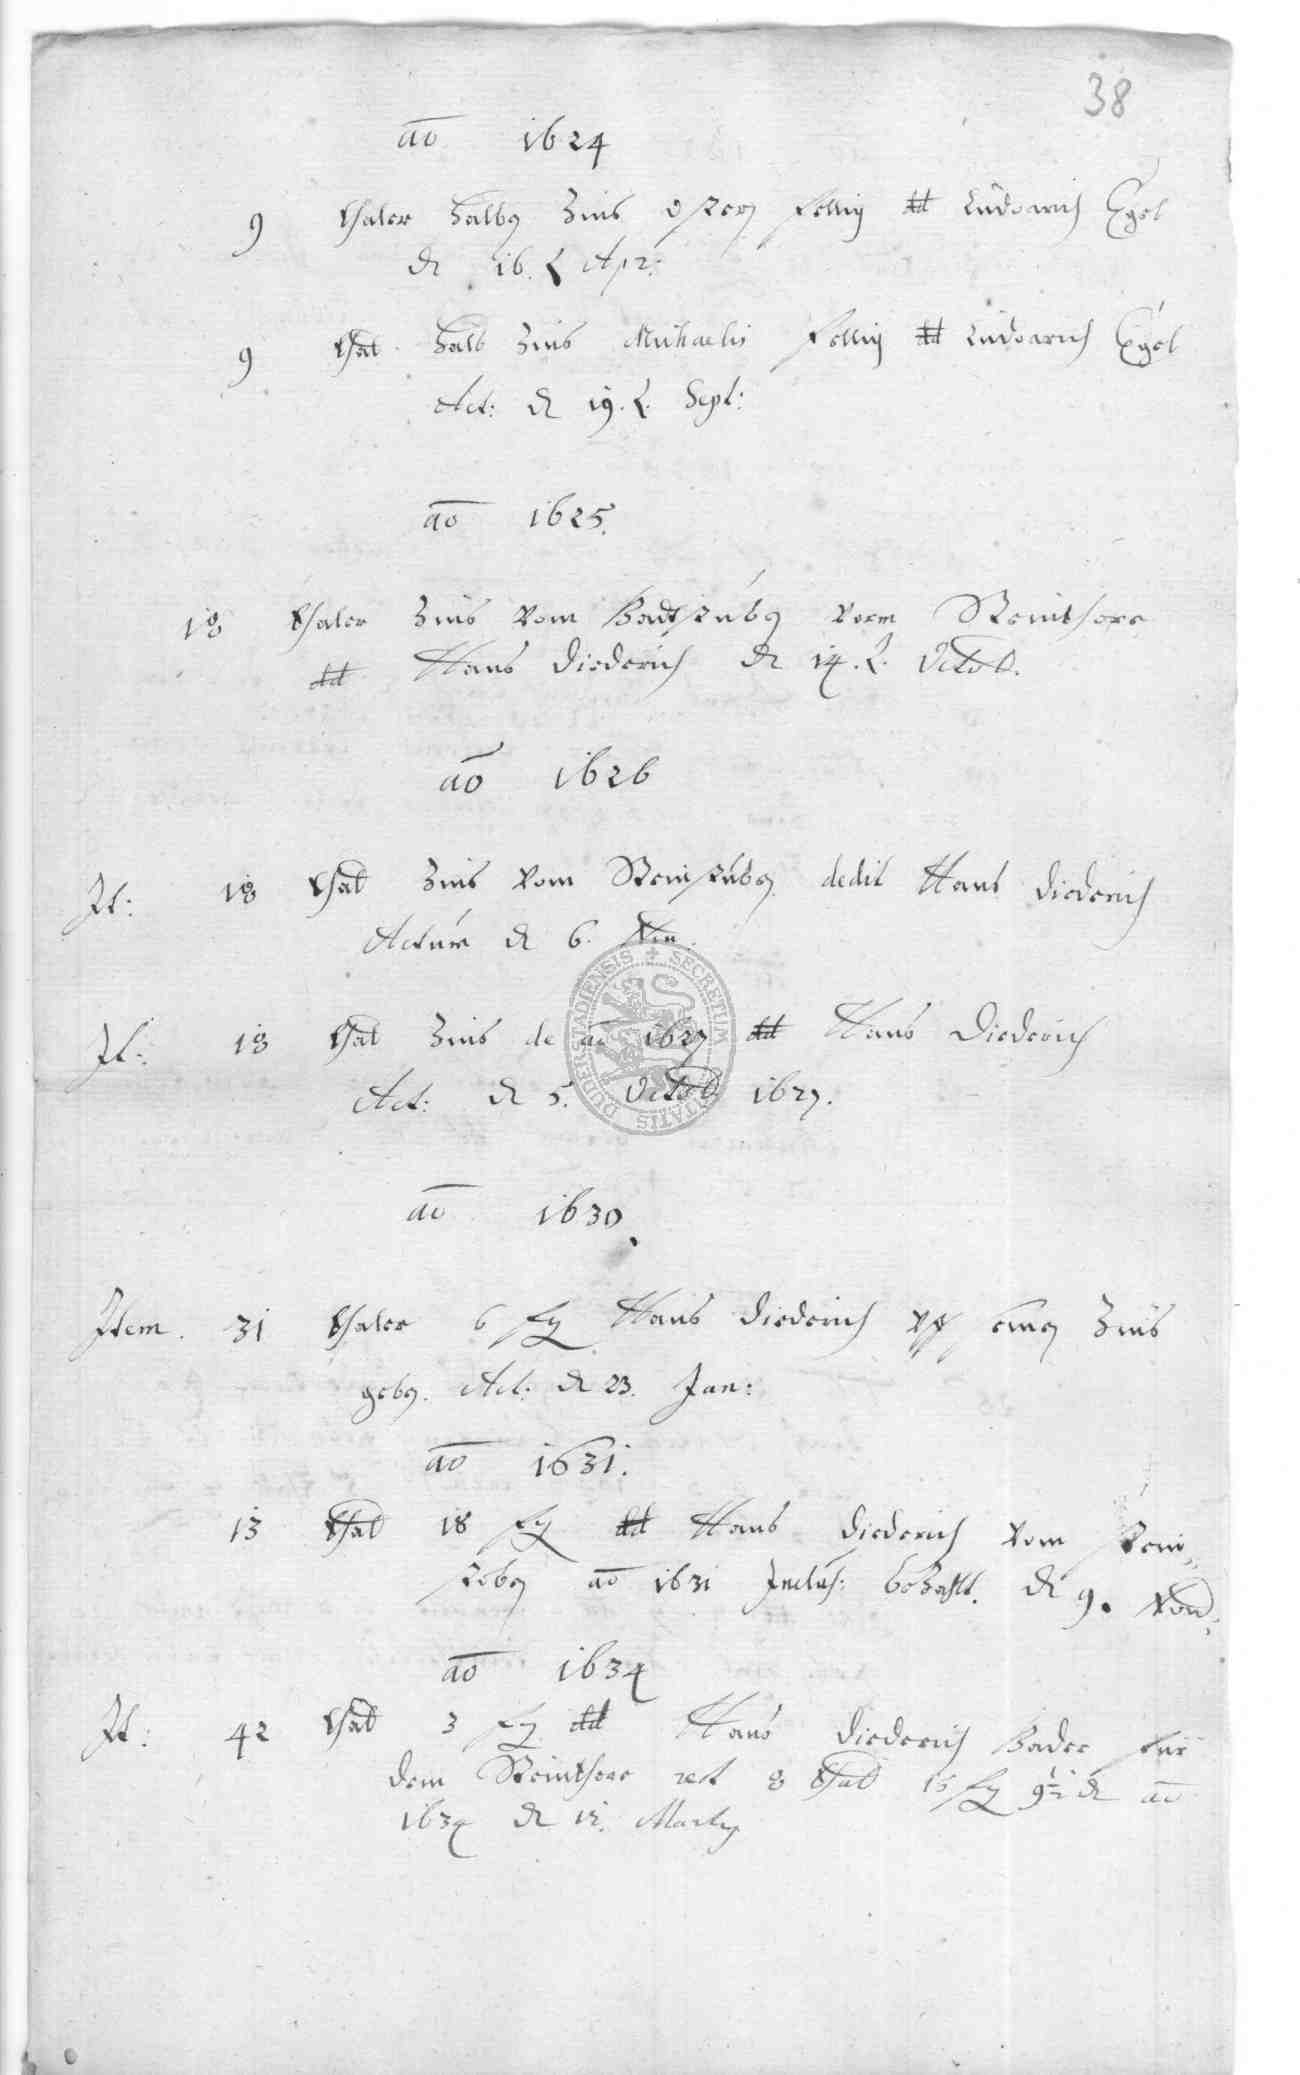 38
aō 1624
9 thaler halbe Zins ostern fellig dd Ludowich Egel
d 16. Apr:
9 thal halb Zins Michaelis fellig dd Ludowich Egel
Act: d 19. Sept:
aō 1625.
18 thaler Zins vom Badtstuben vorm Steinthore
dd Hans Diederich d 14. Octob.
aō 1626
It: 18 thal Zins vom Steinstuben dedit Hans Diederich
Actum d 6.
It: 18 thal Zins de aō 1627 dd Hans Diederich
Act: d 5. Octob 1627.
aō 1630.
Item. 31 thaler 6 Hans Diederich vff einen Zins
geben. Act. d 23. Jan:
aō 1631.
13 thal 18 dd Hans Diederich vom Stein
stuben aō 1631 Inclus: bezahlt. d 9.
aō 1634
It: 42 thal 3 dd Hans Diederich Bader fur
dem Steinthore rest 8 thal 15 9½ d aō
1634 d 12. Martij
SECRETUM CIVITATIS DUDERSTADIENSIS